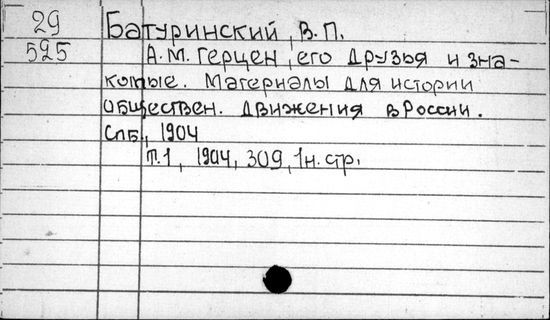 29 Батуринский, В.П.
595 А.М. Герцен, его друзья и зна-
комые. Материалы для истории
обществен. движения в России.
Спб, 1904
Т.1, 1904, 309, 1н. стр.